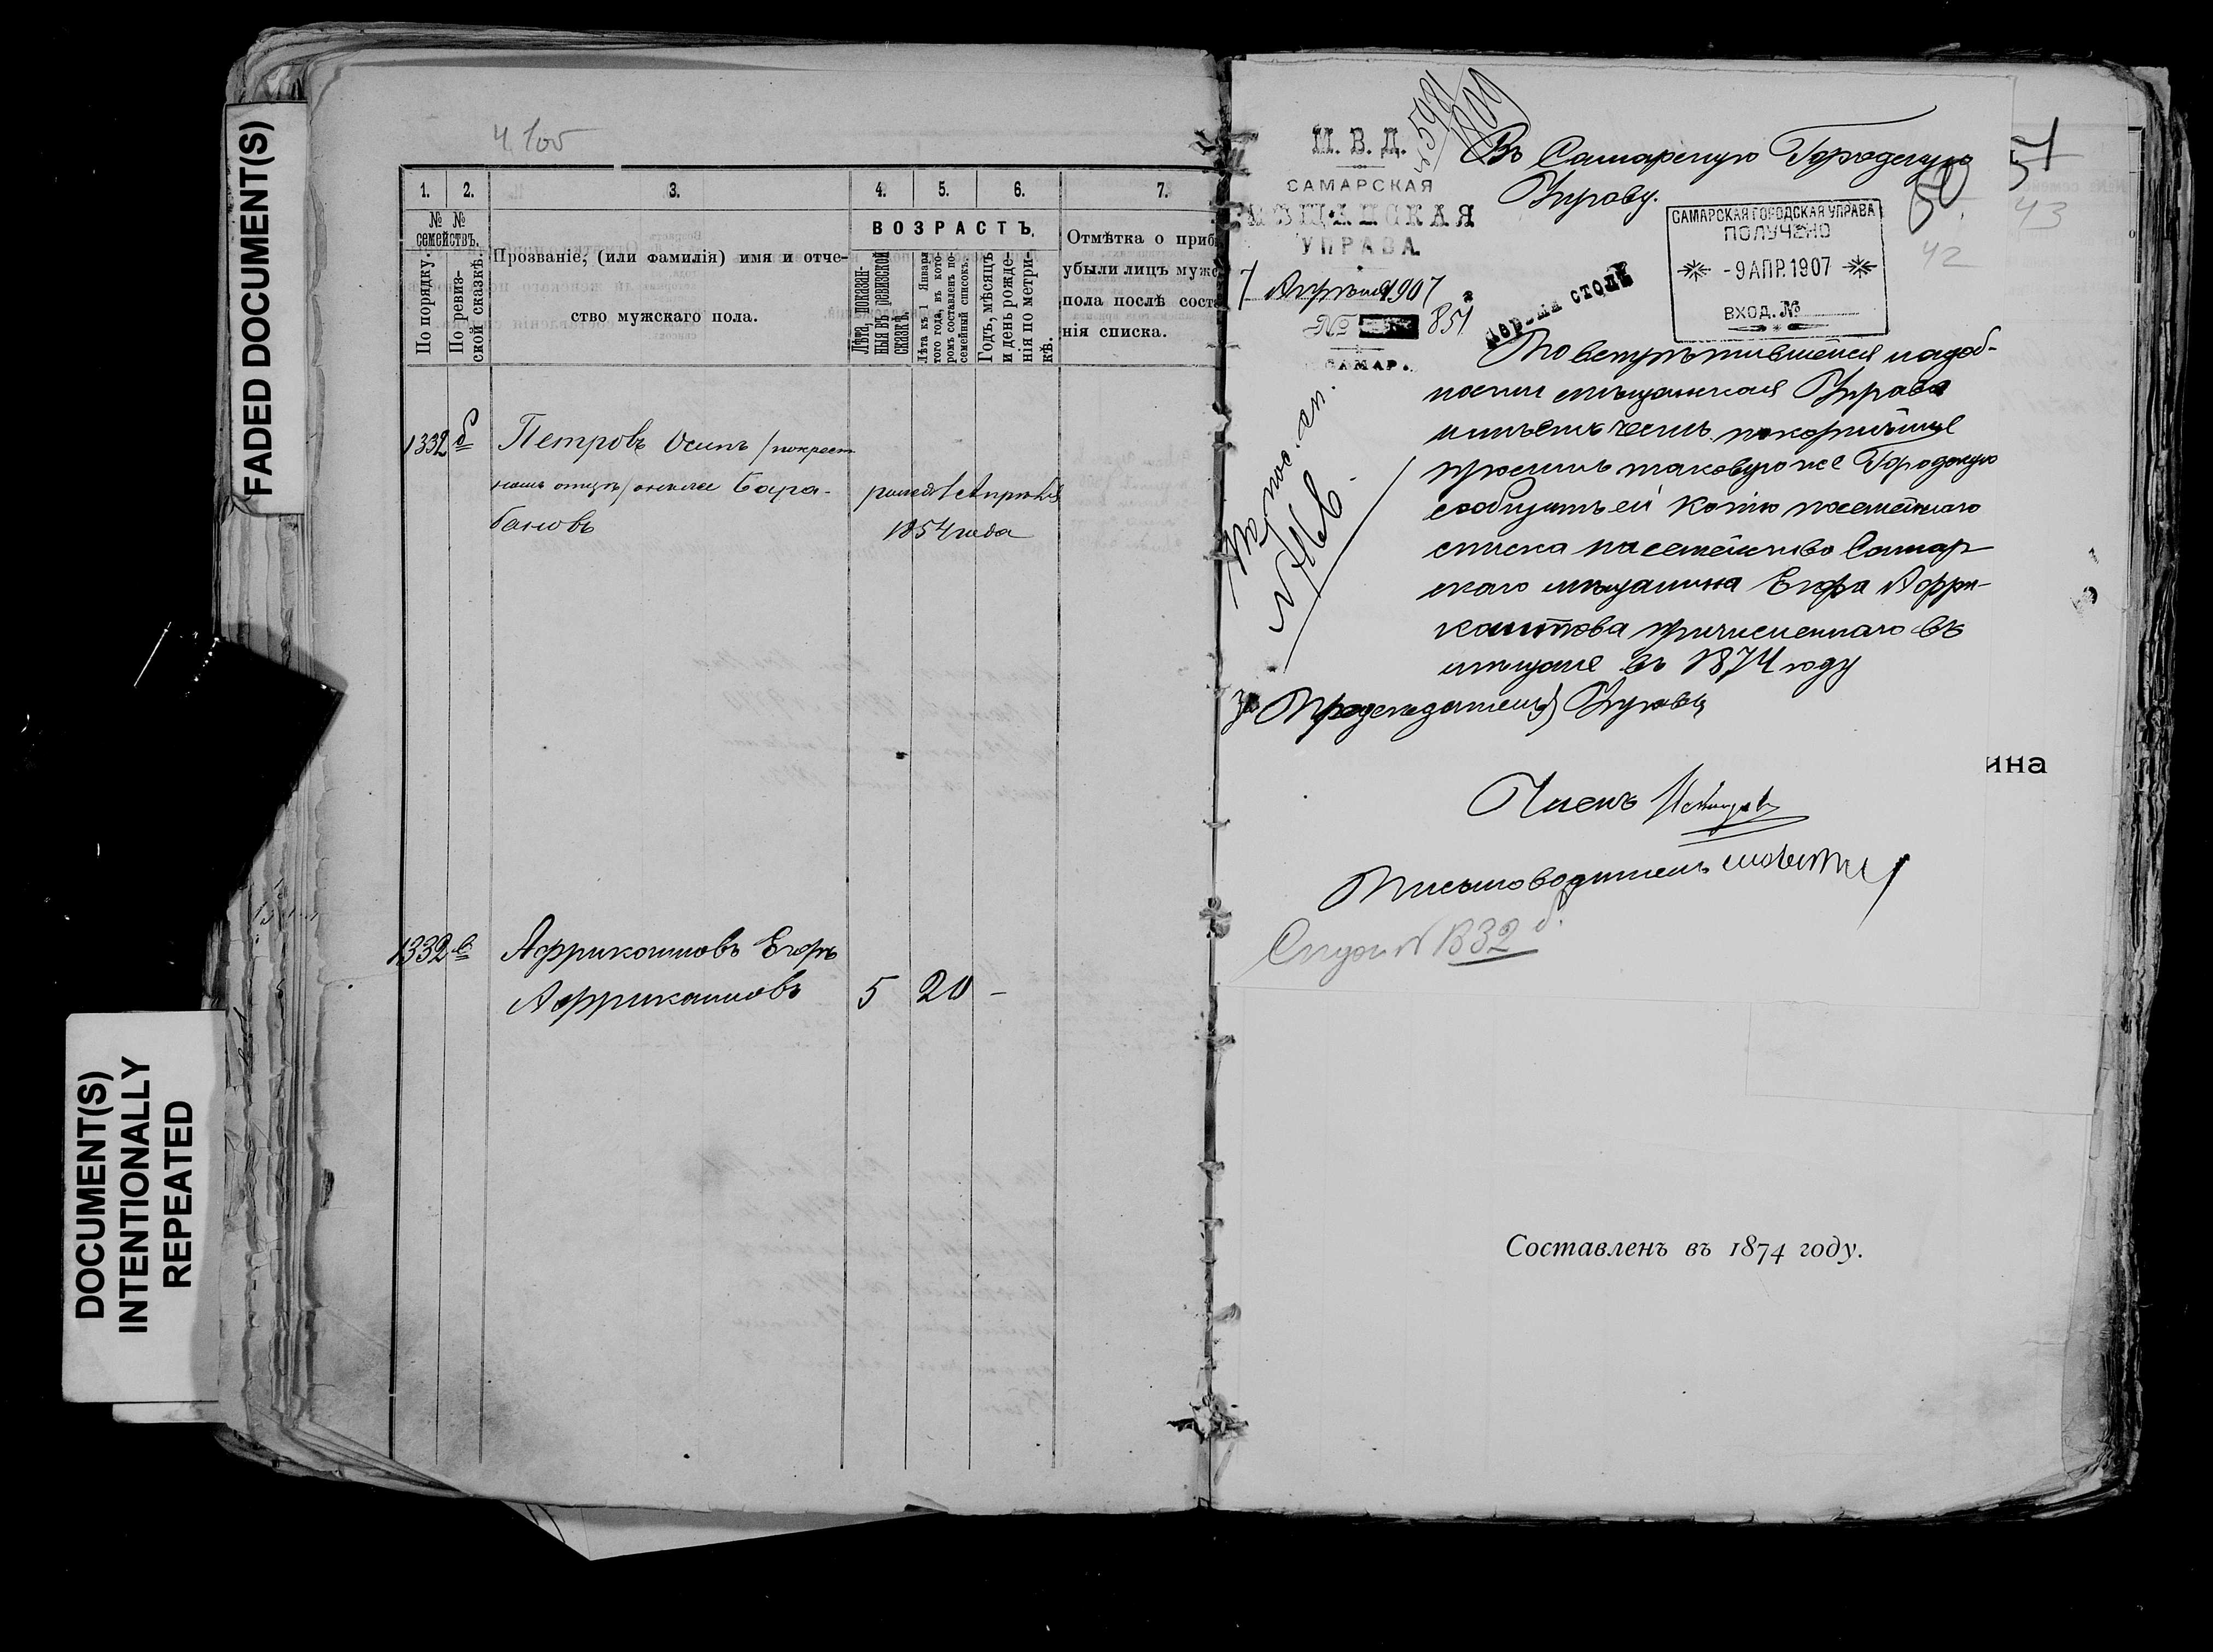 FADED DOCUMENT(S)
DOCUMENT(S)
INTENTIONALLY
REPEATED
1. 2. 3. 4. 5. 6. 7.
№ №
семействъ.
По порядку.
По ревиз-
ской сказкѣ.
Прозваніе, (или фамилія) имя и отче-
ство мужскаго пола.
ВОЗРАСТЪ.
Лѣта, показан-
ныя въ ревизской
сказкѣ.
Лѣта къ 1 Января
того года, въ кото-
ромъ составленъ по-
семейный списокъ.
Годъ, мѣсяцъ
и день рожде-
нія по метри-
кѣ.
Отмѣтка о приб
убыли лицъ мужс
пола послѣ соста
нія списка.
1332 б Петровъ Осипъ /покрест
номъ отцѣ/ онъ же Бара-
бановъ
1 Апрѣля
1854 года
1332 в Аффрикантовъ Егоръ
Аффрикантовъ 5 20 -
М. В. Д.
САМАРСКАЯ
МѢЩАНСКАЯ
УПРАВА.
7 Апрѣля 1907
№ 851
САМАР.
Въ Самарскую Городскую
Управу.
50
51
42
43
САМАРСКАЯ ГОРОДСКАЯ УПРАВА
ПОЛУЧЕНО
- 9 АПР. 1907
ВХОД. №
По встрѣтившейся надоб-
ности мѣщанская Управа
имѣетъ честь покорнѣйше
просить таковую же Городскую
сообщить ей копію посемейнаго
списка на семейство Самар
скаго мѣщанина Егора Аффри-
кантова причисленнаго въ
мѣщане въ 1874 году
За Предсѣдателя Управы
Членъ
Письмоводитель
1332 б.
ина
Составленъ въ 1874 году.